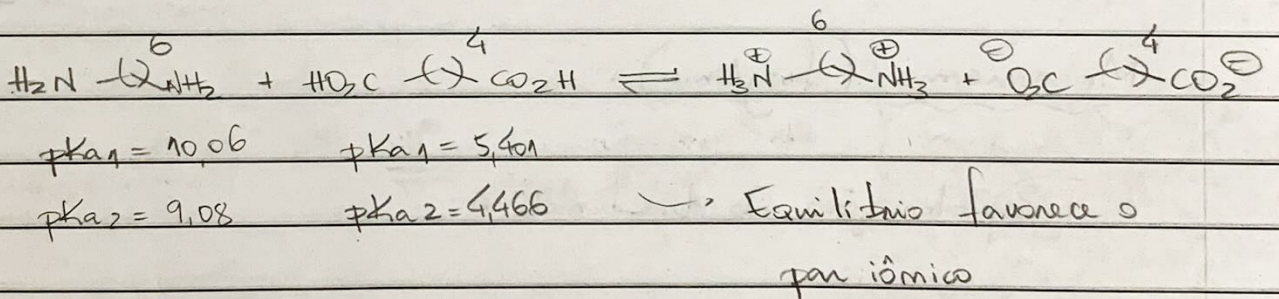 H₂N –( )⁶– NH₂ + HO₂C –( )⁴– CO₂H ⇌ H₃N⊕ –( )⁶– ⊕NH₃ + ⊖O₂C –( )⁴– CO₂⊖
pKa₁ = 10,06 pKa₁ = 5,401
pKa₂ = 9,08 pKa2 = 4,466 → Equilíbrio favorece o
par iômico